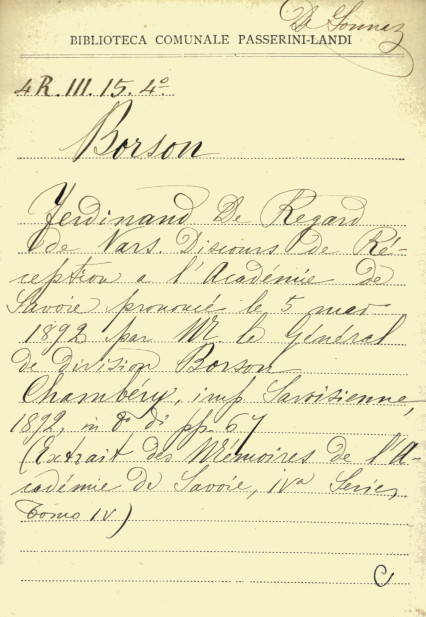 De Sonnaz
BIBLIOTECA COMUNALE PASSERINI-LANDI
4R.III.15.4º
Borson
Ferdinand De Regard
de Vars. Discours de Ré-
ception a l'Académie de
Savoie prononcé le 5 mar
1892 par Mr. le Général
de division Borson
Chambéry, imp. Savoisienne,
1892, in 8º di pp. 67
(Extrait des Mémoires de l'A-
cadémie de Savoie, IVa Serie,
Tomo IV)
C